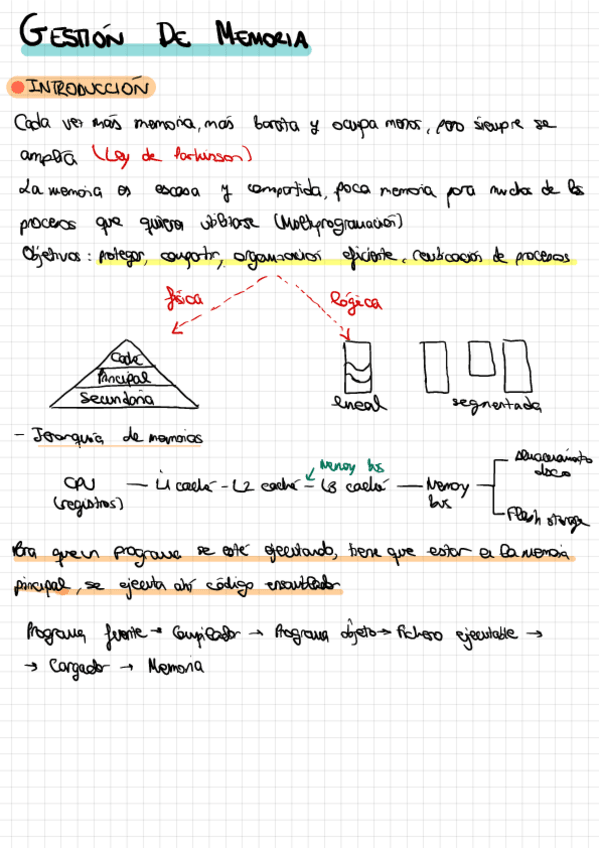 GESTIÓN DE MEMORIA
INTRODUCCIÓN
Cada vez más memoria, más barata y ocupa menos, pero siempre se
amplía (Ley de Parkinson)
La memoria es escasa y compartida, poca memoria para muchos de los
procesos que quieren utilizarse (Multiprogramación)
Objetivos: proteger, compartir, organización eficiente, reubicación de procesos
física
lógica
Caché
Principal
Secundaria
lineal
segmentada
- Jerarquía de memorias
Memory bus
CPU
(registros)
L1 caché - L2 caché - L3 caché
Memory
bus
Almacenamiento
disco
Flash storage
Para que un programa se esté ejecutando, tiene que estar en la memoria
principal, se ejecuta ahí código ensamblador
Programa fuente → Compilador → Programa objeto → Fichero ejecutable →
→ Cargador → Memoria